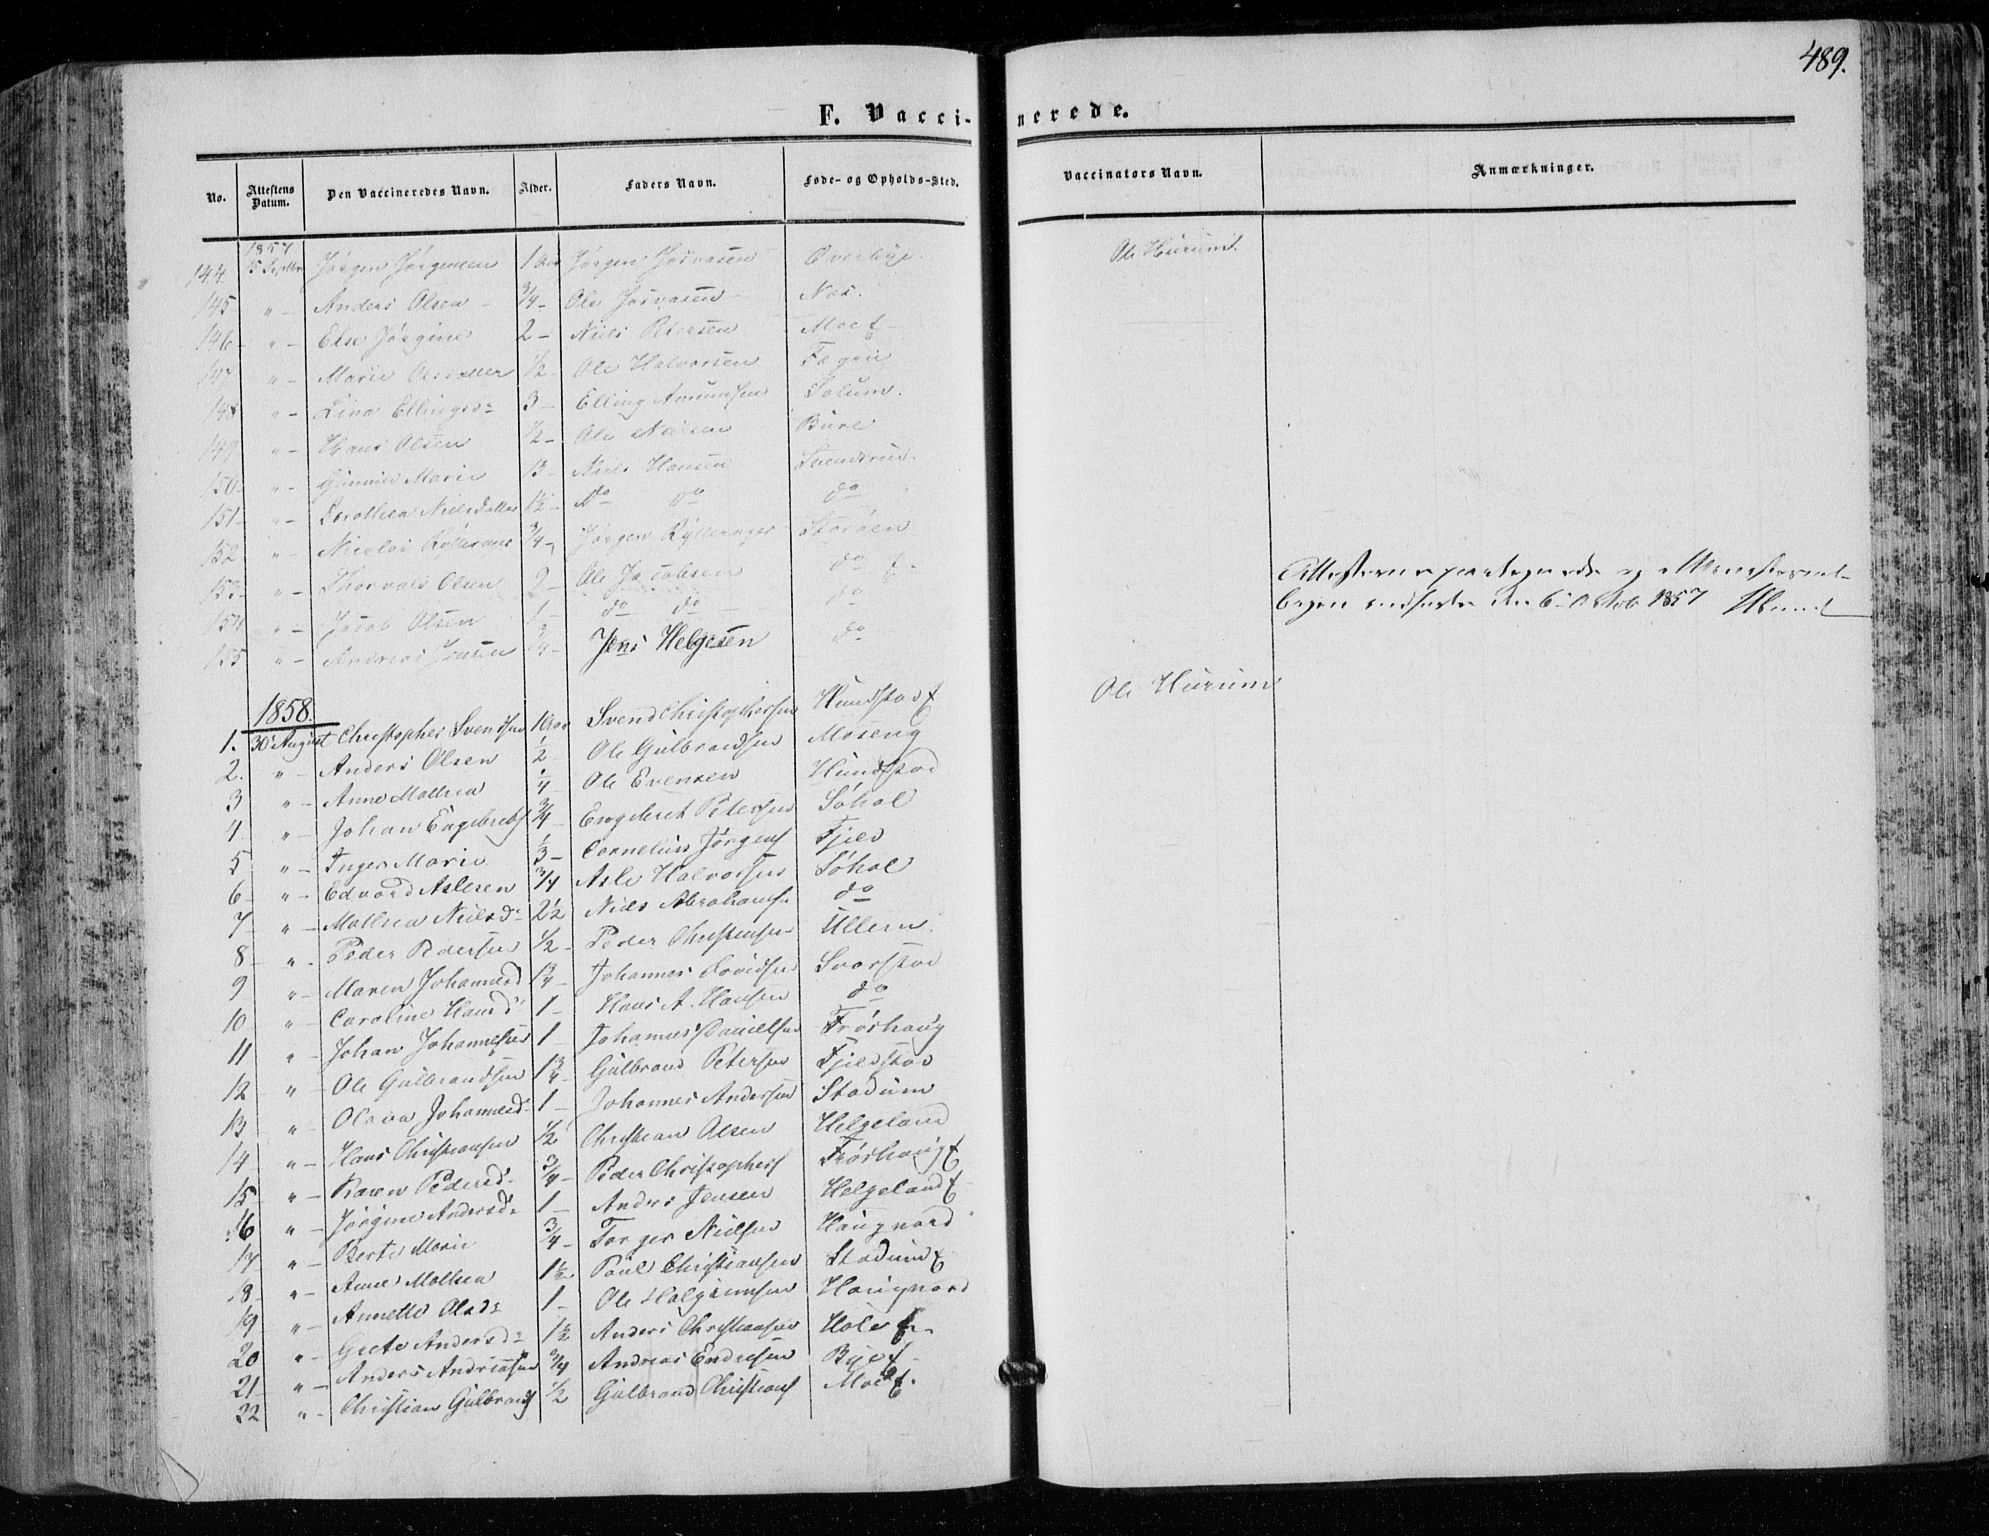 489.
F. Vaccinerede.
No. Attestens Datum. Den Vaccineredes Navn. Alder. Faders Navn. Føde- og Opholds-Sted. Vaccinators Navn. Anmærkninger.
1857
144 5 Septbr Jørgen Jørgensen 1 Aar Jørgen Overbye. Ole Hurum
145 " - Anders Olsen - 3/4 - Ole Næs.
146 " - Else Jørgine 2 - Niels Petersen Moe
147 " - Marie 1/2 - Ole Halvorsen
148 " - Lina Ellingsd: 3 - Elling Amundsen Solum.
149 " - Hans Olsen 1/2 - Ole Nielsen Bure
150 " - Marie Niels Hansen Svendsrud.
151 " - Dorothea Nielsdatter 1 1/2 - do do do
152 " - Nicolai 3/4 - Jørgen Storøen
153 " - Thorvald Olsen 2 - Ole Jacobsen do
154 " - Jacob Olsen 1 - do do do
155 " - Andreas Jensen 3/4 - Jens Helgesen do
den 6 Octob 1857
1858.
1. 30 August Christopher Svendsen 1 Aar Svend Christophersen Hundstad Ole Hurum
2. " - Anders Olsen 1/2 Ole Gulbrandsen Moseng
3 " - Anne Mathea 1/4 - Ole Evensen Hundstad
4 " - Johan Engebrets 3/4 Engebret Petersen Søhol
5 " - Inger Marie 1/3 - Cornelius Jørgens Fjeld
6 " - Edvard Aslesen 3/4 Asle Halvorsen Søhol
7 " - Mathea Nielsd: 2 1/2 Niels Abrahams do
8 " - Peder Pedersen 1/2 - Peder Christensen Ullern
9 " - Maren Johannesd 1 3/4 - Johannes Svarstad
10 " - Caroline Hansd: 1 - Hans A. Hansen do
11 " - Johan Johannesen 1 Johannes Danielsen Frøshaug
12 " - Ole Gulbrandsen 1 3/4 - Gulbrand Petersen Fjeldstad
13 " - Olava Johannesd: 1 - Johannes Andersen Stadum
14 " - Hans Christiansen 1/2 Christian Olsen Helgeland
15 " - Karen Pedersd: 3/4 - Peder Christophers Frøshaug
16 " - Jørgine Andersd: 1 - Anders Jensen Helgeland
17 " - Berte Marie 3/4 - Torger Nielsen Haugnord
18 " - Anne Mathea 1 1/2 Paul Christiansen Stadum
19 " - Annette Olsd: 1 - Ole Halgrimsen Haugnord
20 " - Grete Andersd: 1 1/2 Anders Christiansen Hole
21 " - Anders Andreasen 3/4 Andreas Endresen Bye
22 " - Christian Gulbrands 1/2 Gulbrand Christians Moe